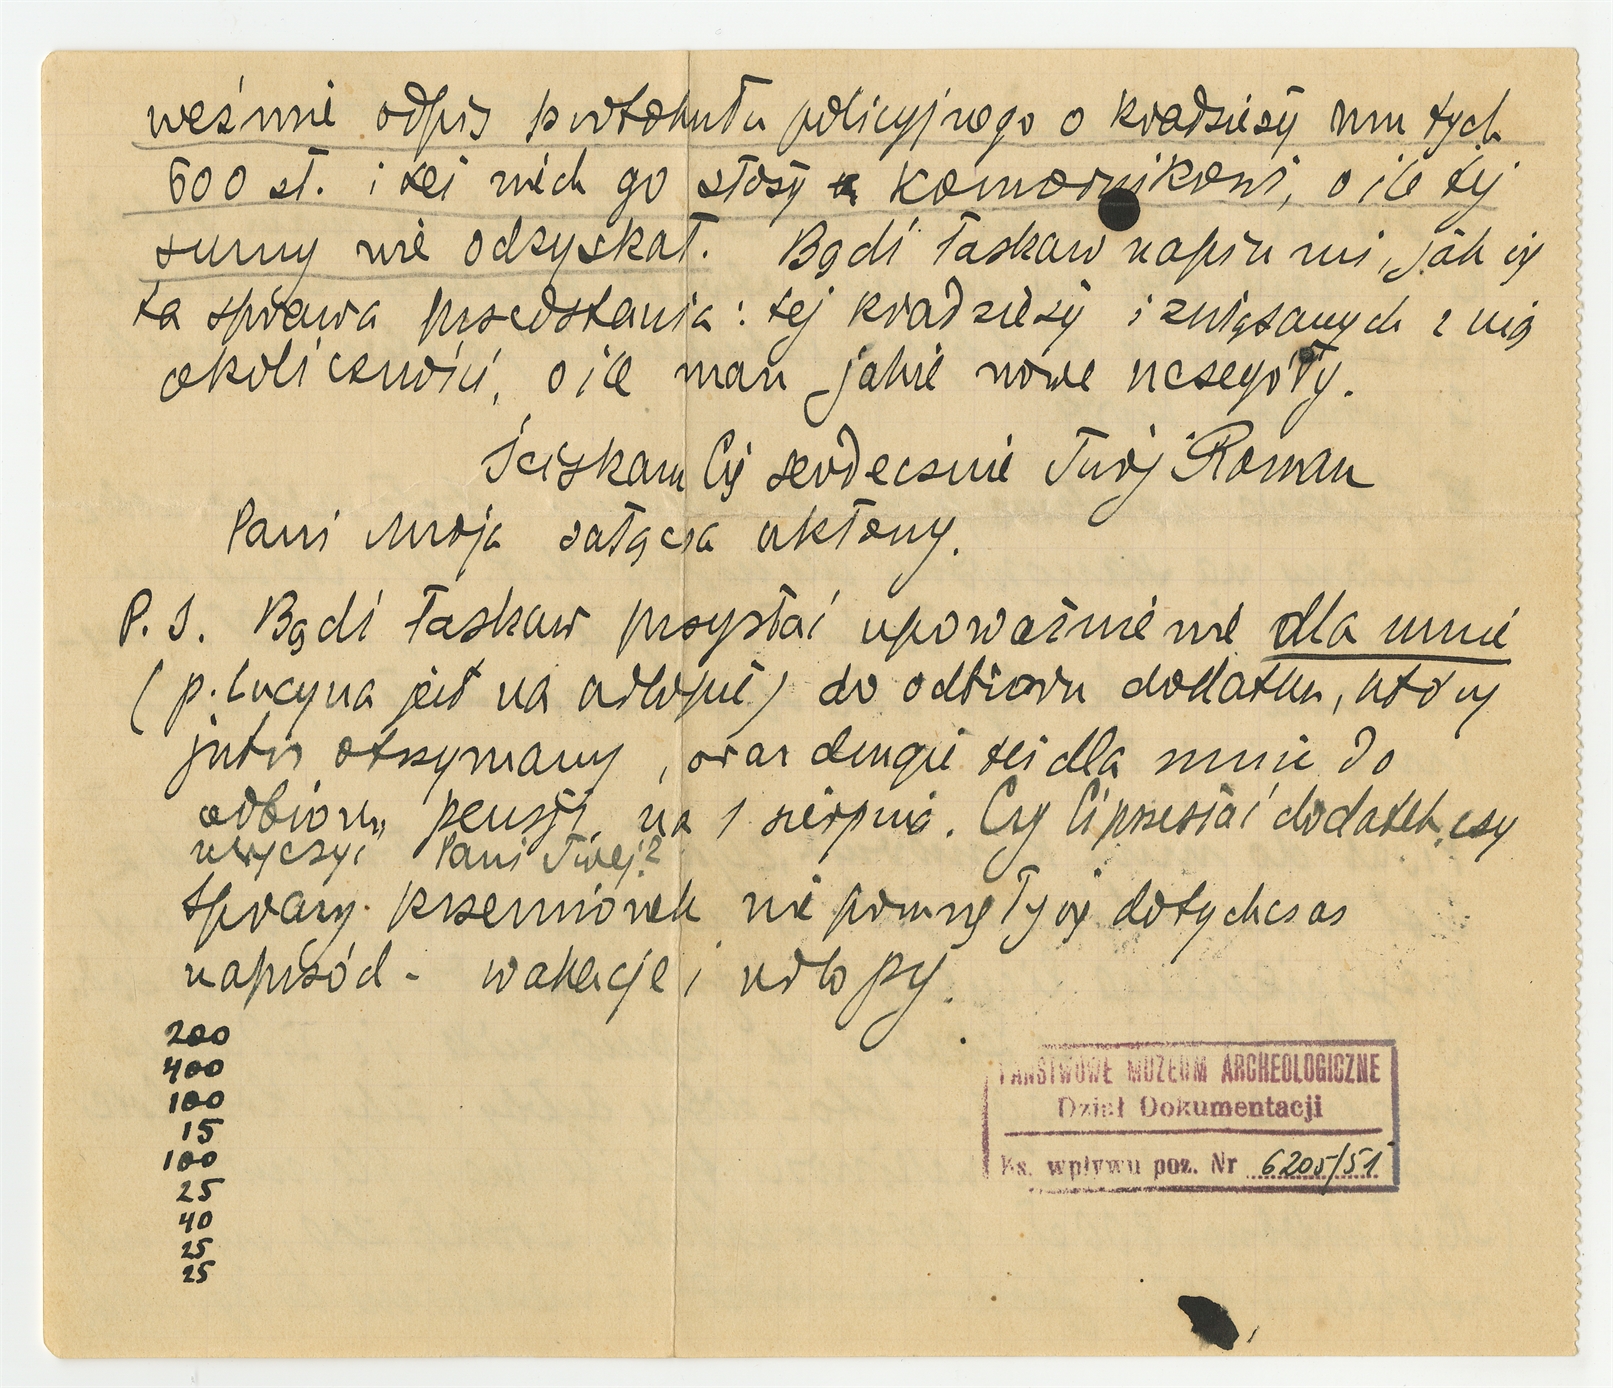 weźmie odpis protokułu policyjnego o kradzieży mu tych
600 zł. i też niech go złoży komornikowi, o ile tej
sumy nie odzyskał. Bądź łaskaw napisz mi, jak się
ta sprawa przedstawia: tej kradzieży i związanych z nią
okoliczności, o ile masz jakie nowe szczegóły.
Ściskam Cię serdecznie Twój Roman
Pani Moja załącza ukłony.
P. S. Bądź łaskaw przysłać upoważnienie dla mnie
(p. Lucyna jest na urlopie) do odbioru dodatku, który
jutro otrzymamy, oraz drugie też dla mnie do
odbioru pensji na 1 sierpnia. Czy Ci przesłać dodatek, czy
wręczyć Pani Twej?
Sprawy Krzemionek nie posunęły się dotychczas
naprzód - wakacje i urlopy.
200
400
100
15
100
25
40
25
25
PAŃSTWOWE MUZEUM ARCHEOLOGICZNE
Dział Dokumentacji
Ks. wpływu poz. Nr 6205/51